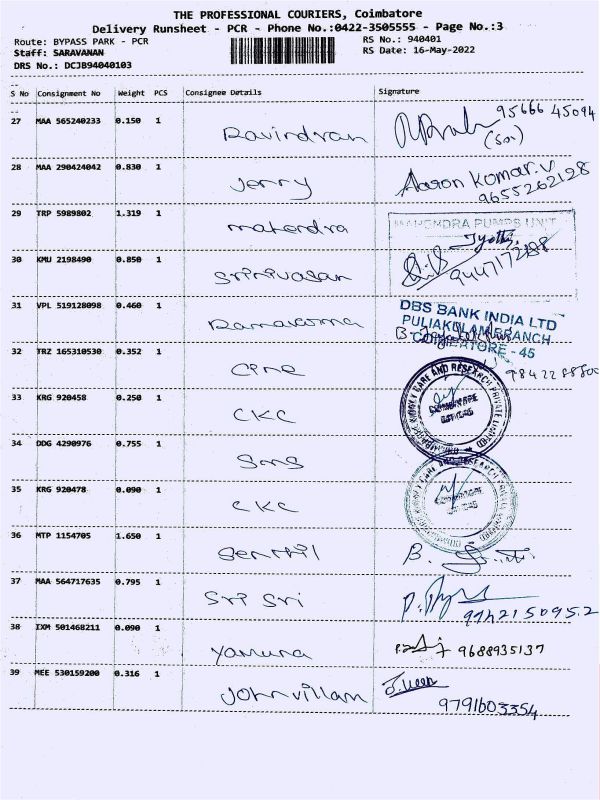 THE PROFESSIONAL COURIERS, Coimbatore
Delivery Runsheet - PCR - Phone No.:0422-3505555 - Page No.:3
Route: BYPASS PARK - PCR
RS No.: 940401
Staff: SARAVANAN
RS Date: 16-May-2022
DRS No.: DCJB94040103
S No Consignment No Weight PCS Consignee Details Signature
27 MAA 565240233 0.150 1 Ravindran 95666 45094
(Son)
28 MAA 290424042 0.830 1 Jerry Aaron Komar.V
9655262128
29 TRP 5989802 1.319 1 mahendra
MAHENDRA PUMPS UNIT
Jyothi
30 KMU 2198490 0.850 1 Srinivasan 9447172188
31 VPL 519128098 0.460 1 Ramavarma
DBS BANK INDIA LTD
PULIAKULAM BRANCH
COIMBATORE - 45
32 TRZ 165310530 0.352 1
33 KRG 920458 0.250 1 CKC
COIMBATORE KIDNEY CARE AND RESEARCH PRIVATE LIMITED
COIMBATORE
34 DDG 4290976 0.755 1 SMS
35 KRG 920478 0.090 1 CKC
36 MTP 1154705 1.650 1 Senthil B.
37 MAA 564717635 0.795 1 Sri Sri
9742150952
38 IXM 501468211 0.090 1 Yamuna 9688935137
39 MEE 530159200 0.316 1 John villam
9791603354